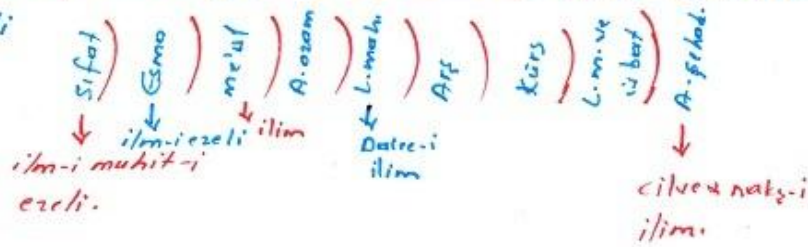 i
Sıfat ) Esma ) Me'lul ) A.azam ) L.mah. ) Arş ) Kürs ) L.m.ve isbat ) A.şehad.
ilm-i muhit-i ezeli.
ilm-i ezeli
ilim
Daire-i ilim
cilve nakş-i ilim.